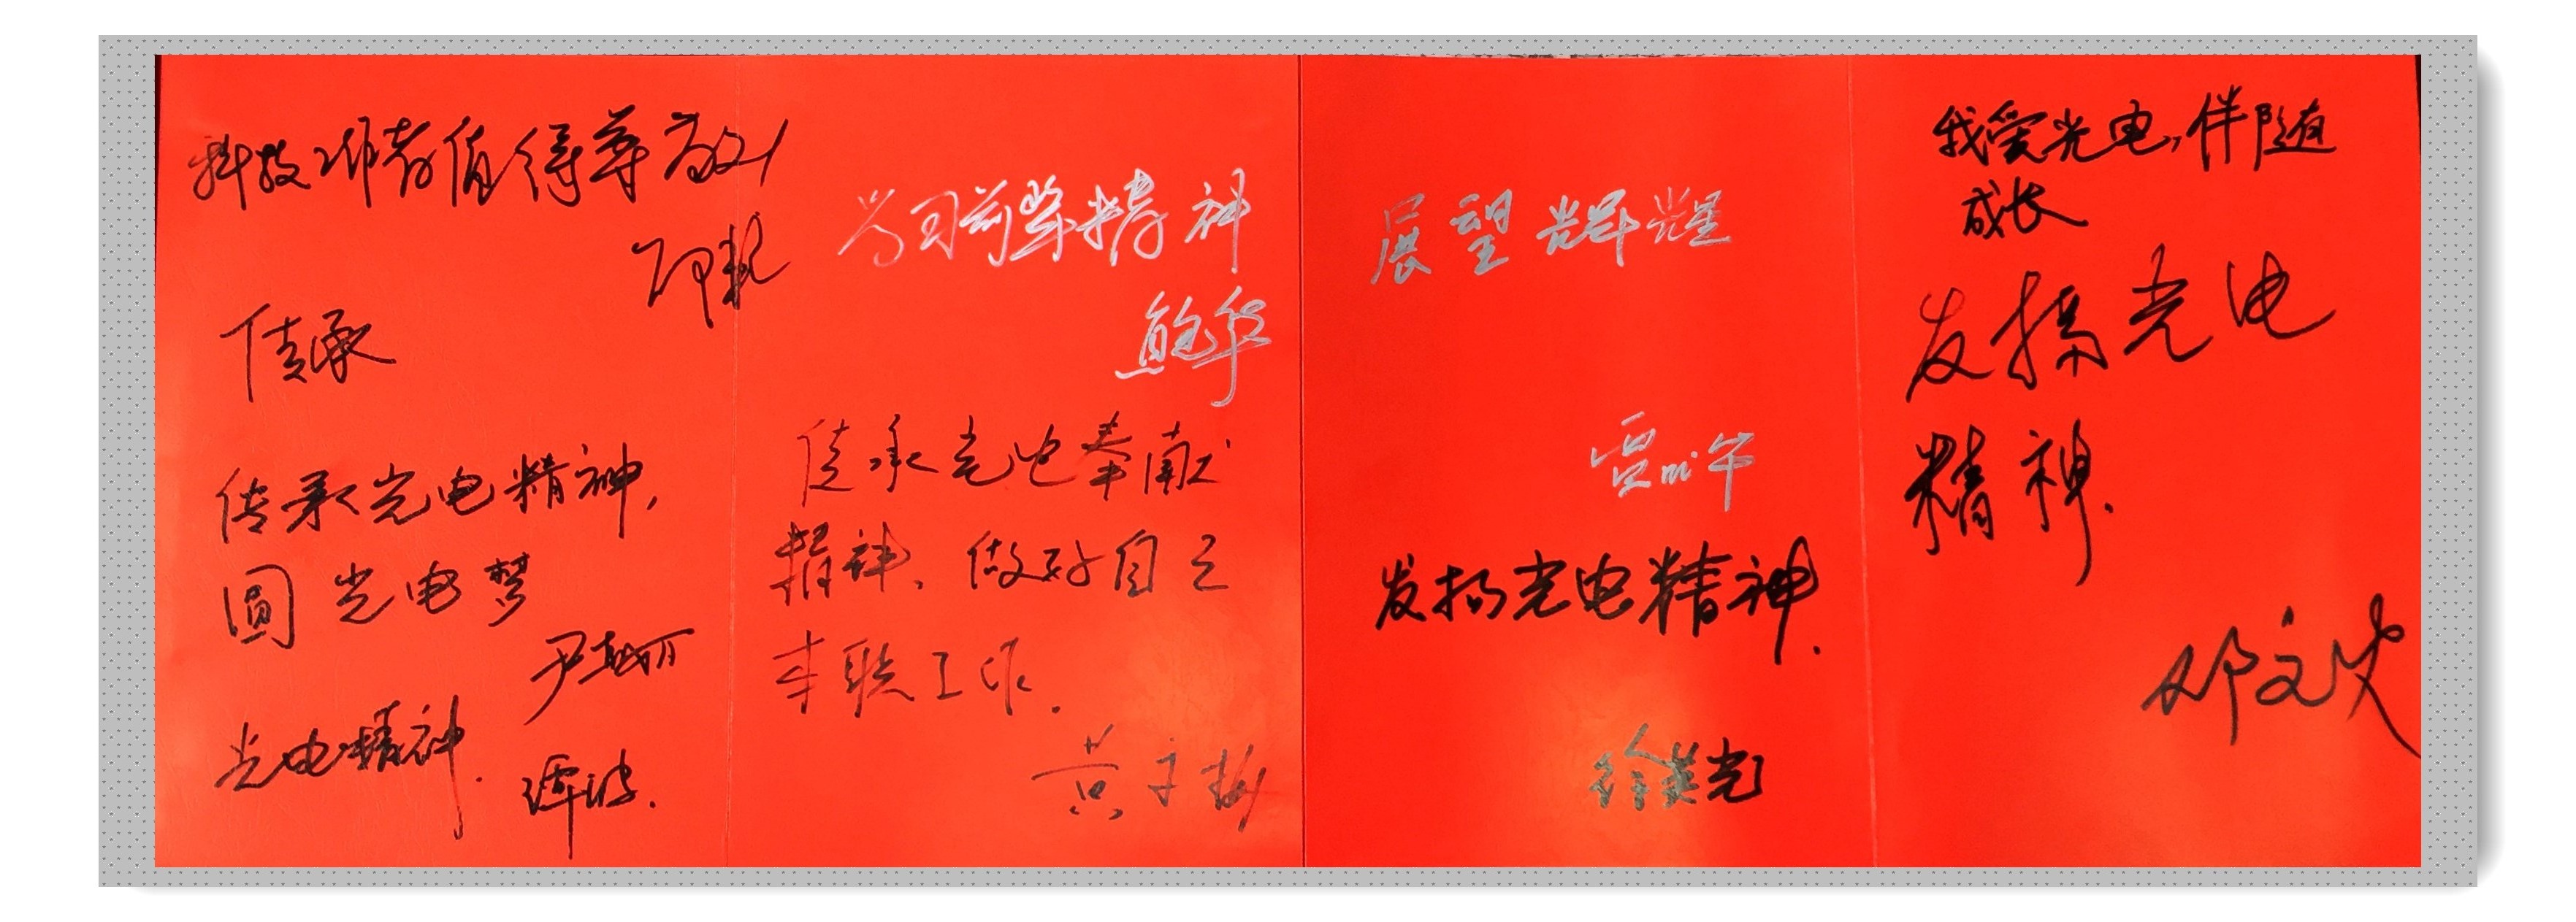 科技工作者值得尊敬!
传承
传承光电精神,
圆光电梦
尹越
光电精神.
谭波.
学习前辈精神
鲍华
传承光电奉献
精神、做好自己
本职工作.
黄子梅
展望辉煌
贾
发扬光电精神.
徐英光
我爱光电,伴随
成长
发扬光电
精神.
邓文